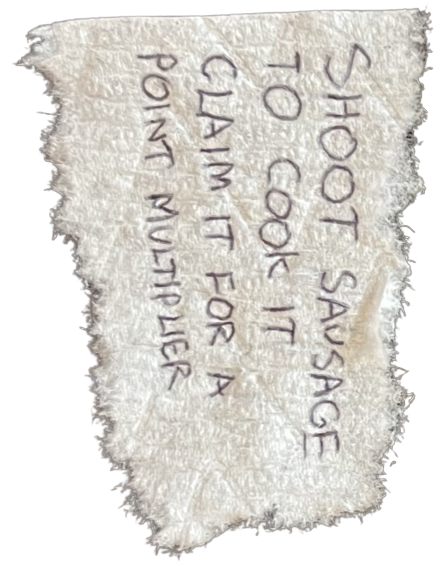 SHOOT SAUSAGE
TO COOK IT
CLAIM IT FOR A
POINT MULTIPLIER